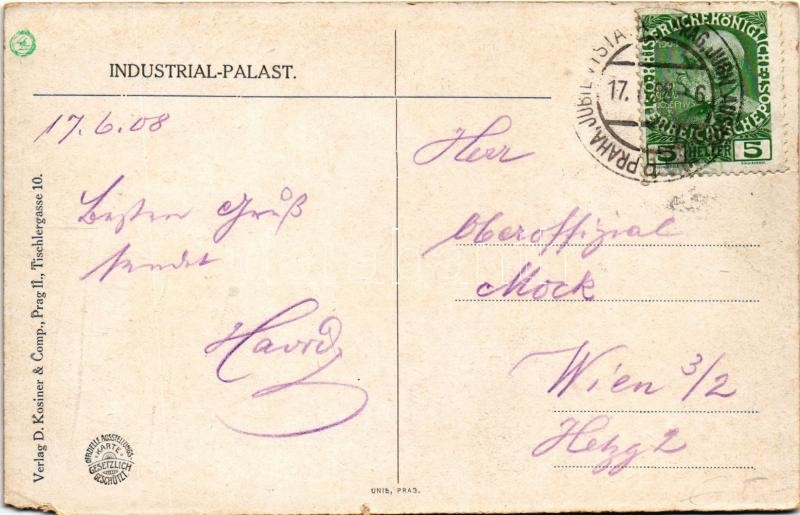 INDUSTRIAL-PALAST.
17.6.08
Besten Gruß
sendet
Verlag D. Kosiner & Comp., Prag II., Tischlergasse 10.
OFFIZIELLE AUSSTELLUNGS-
KARTE
GESETZLICH
GESCHÜTZT
UNIE, PRAG.
5 HELLER 5
17.
6
PRAHA, JUBIL. VÝSTA
Herr
Oberoffizial
Mock
Wien 3/2
Hetzg 2